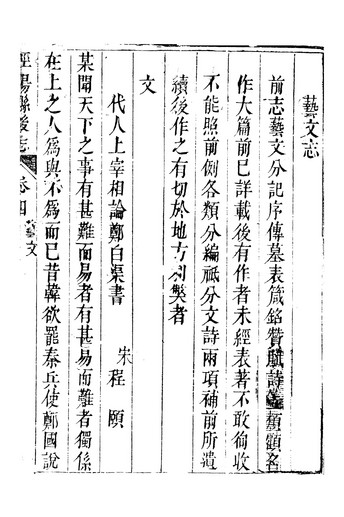 藝文志
前志藝文分記序傳墓表箴銘贊賦詩類頗各
作大篇前已詳載後有作者未經表著不敢徇收
不能照前例各類分編祇分文詩兩項補前所遺
續後作之有切於地方利獘者
文
代人上宰相論鄭白渠書
宋程頤
某聞天下之事有甚難而易者有甚易而難者獨係
在上之人爲與不爲而已昔韓欲罷秦兵使鄭國說
涇陽縣後志 卷四 藝文